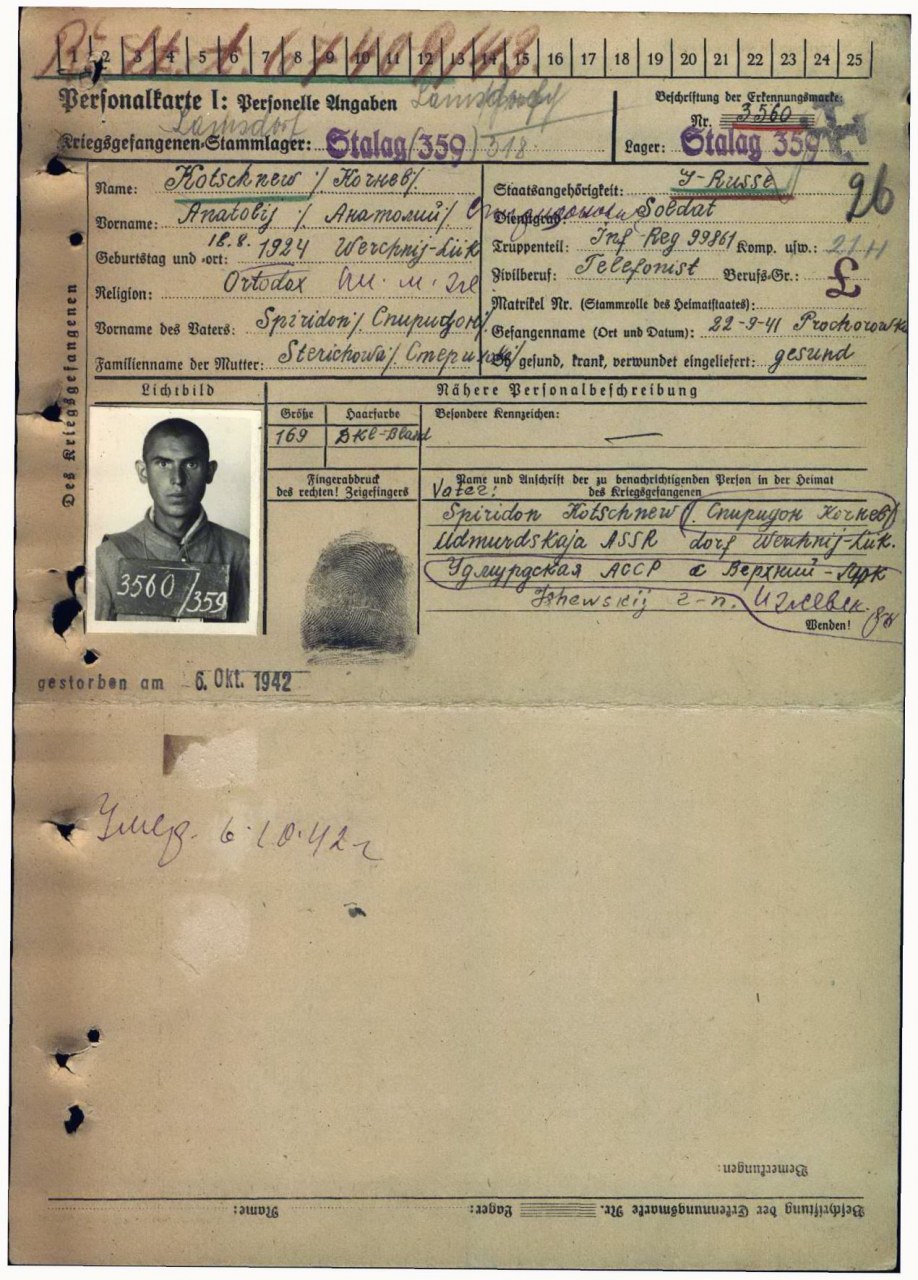 1 2 3 4 5 6 7 8 9 10 11 12 13 14 15 16 17 18 19 20 21 22 23 24 25
Personalkarte I: Personelle Angaben
Lamsdorf
Beschriftung der Erkennungsmarke
Nr. 3560
Lamsdorf
Kriegsgefangenen-Stammlager: Stalag 359 318
Lager: Stalag 359
Des Kriegsgefangenen
Name: Kotschnew /Кочнев/
Staatsangehörigkeit: S-Russe
26
Vorname: Anatolij /Анатолий/ Спиридонович
Dienstgrad: Soldat
Geburtstag und -ort: 18.8. 1924 Werchnij-Lük
Truppenteil: Inf-Reg 99861 Komp. usw.:
Religion: Ortodox
Zivilberuf: Telefonist Berufs-Gr.: L
Matrikel Nr. (Stammrolle des Heimatstaates):
Vorname des Vaters: Spiridon /Спиридон/
Gefangenname (Ort und Datum): 22-9-41 Prochorowka
Familienname der Mutter: Sterichowa
Ob gesund, krank, verwundet eingeliefert: gesund
Lichtbild
Nähere Personalbeschreibung
Größe Haarfarbe Besondere Kennzeichen:
169 Dkl-Blond —
Fingerabdruck
des rechten! Zeigefingers
Name und Anschrift der zu benachrichtigenden Person in der Heimat
des Kriegsgefangenen
Vater:
Spiridon Kotschnew /Спиридон Кочнев/
Udmurdskaja ASSR dorf Werchnij-Lük.
Удмурдская АССР с Верхний-Люк
Ishewskij
Wenden!
3560/359
gestorben am 6. Okt. 1942
Умер. 6.10.42г
Bemerkungen:
Beschriftung der Erkennungsmarke Nr. Lager: Name: